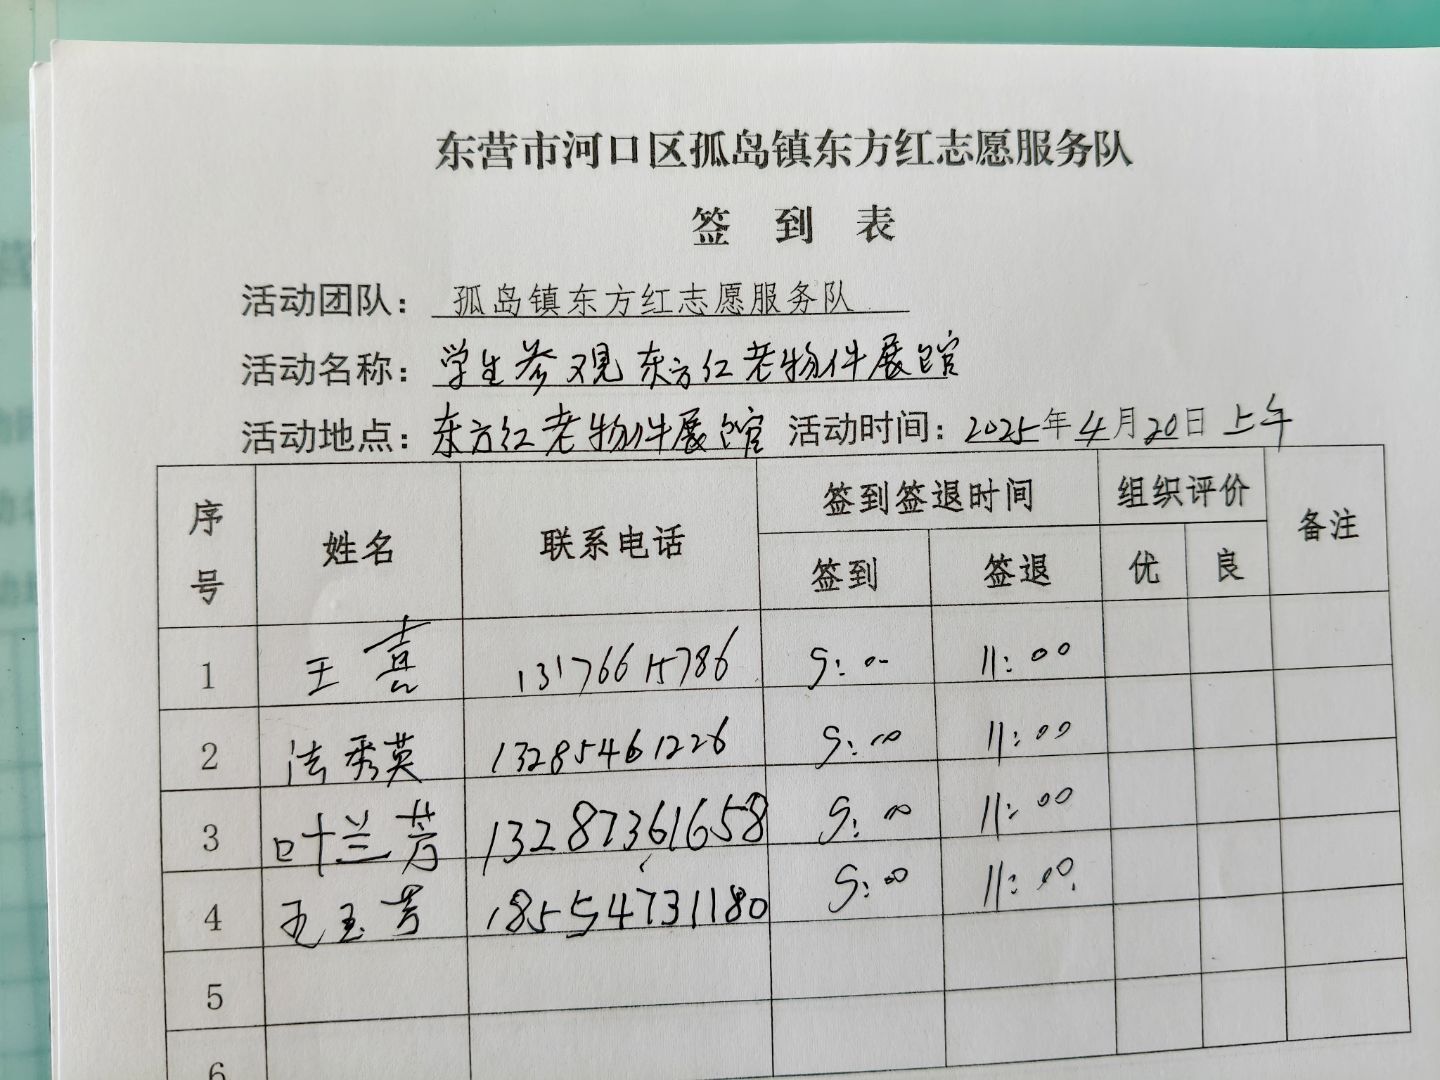 东营市河口区孤岛镇东方红志愿服务队
签到表
活动团队：孤岛镇东方红志愿服务队
活动名称：学生参观东方红老物件展馆
活动地点：东方红老物件展馆 活动时间：2025年4月20日上午
序号 姓名 联系电话 签到签退时间 组织评价 备注
签到 签退 优 良
1 王喜 13176615786 9:00 11:00
2 法秀英 13285461226 9:00 11:00
3 叶兰芳 13287361658 9:00 11:00
4 玉芳 18554731180 9:00 11:00
5
6